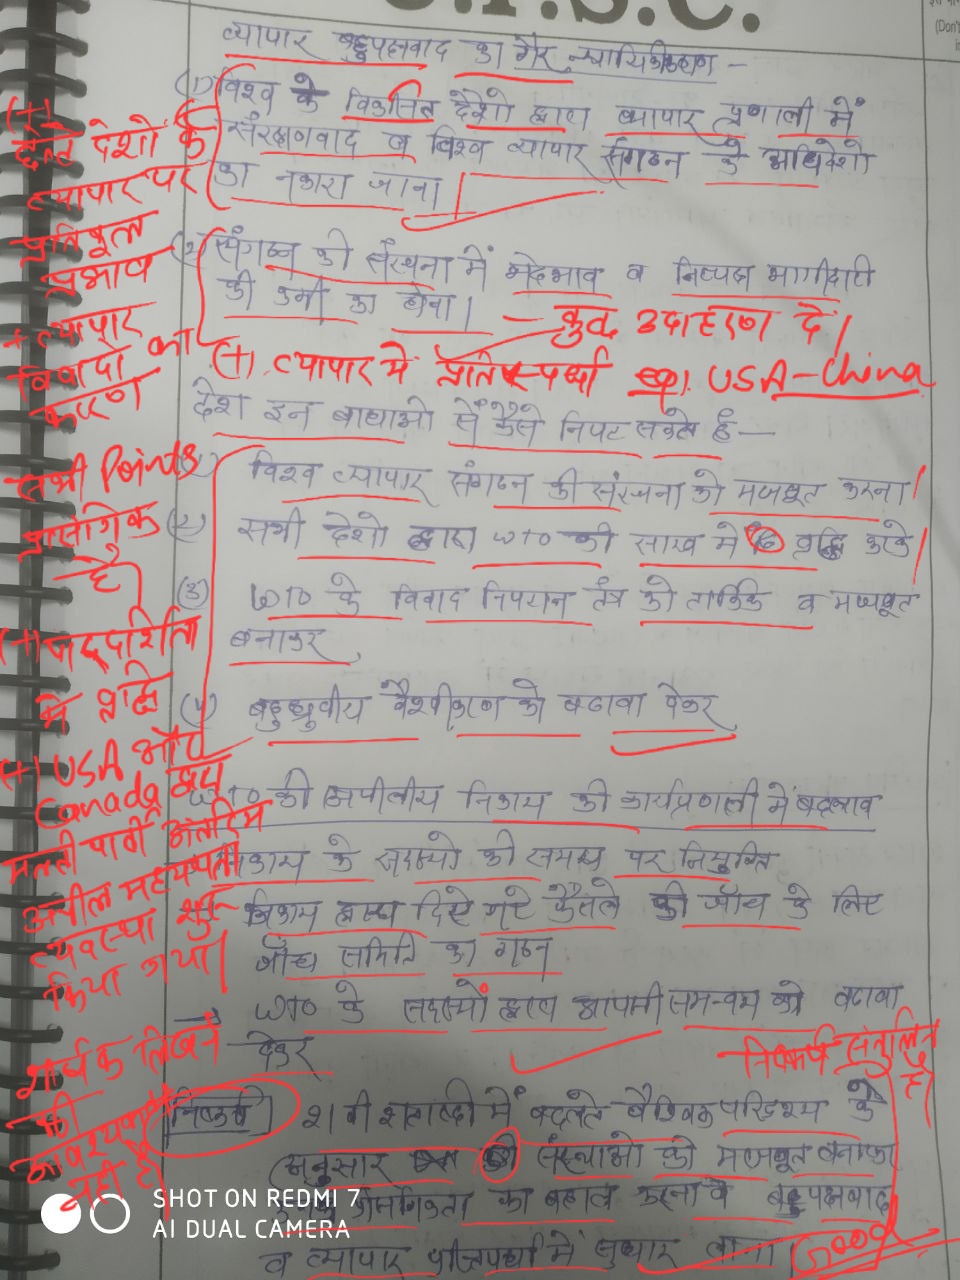 व्यापार बहुपक्षवाद का गैर न्यायिकीकरण -
(Don't
in
(1) विश्व के विकसित देशो द्वारा व्यापार प्रणाली में
संरक्षणवाद व विश्व व्यापार संगठन के अधिदेशो
का नकारा जाना।
(2) संगठन की संरचना में भेदभाव व निष्पक्ष भागीदारी
की कमी का होना।
— कुछ उदाहरण दें।
(+) व्यापार मे प्रतिस्पर्धा eg. USA - China
(+)
छोटे देशों के
व्यापार पर
प्रतिकूल
प्रभाव
+ व्यापार
विवादो का
कारण
देश इन बाधाओ से कैसे निपट सकते है —
विश्व व्यापार संगठन की संरचना को मजबूत करना।
(2) सभी देशो द्वारा WTO की साख मे वृद्धि करके
(3) WTO के विवाद निपटान तंत्र को तार्किक व मजबूत
बनाकर
(4) बहुध्रुवीय वैश्वीकरण को बढावा देकर
सभी Points
प्रासंगिक
है
(+) पारदर्शिता
मे वृद्धि
(+) USA और
Canada द्वारा
मल्टी पार्टी अंतरिम
अपील मध्यस्थता
व्यवस्था शुरू
किया गया।
WTO की अपीलीय निकाय की कार्यप्रणाली में बदलाव
निकाय के सदस्यो की समय पर नियुक्ति
निकाय द्वारा दिए गए फैसले की जाँच के लिए
जाँच समिति का गठन
→ WTO के सदस्यों द्वारा आपसी समन्वय को बढावा
देकर
निष्कर्ष संतुलित
है।
शीर्षक लिखने
की
आवश्यकता
नहीं है।
निष्कर्ष 21 वी शताब्दी में बदलते वैश्विक परिदृश्य के
अनुसार संस्थाओ को मजबूत बनाकर
प्रासंगिकता को बहाल करना व बहुपक्षवाद
व व्यापार प्रतिस्पर्धा में सुधार लाना।
Good
SHOT ON REDMI 7
AI DUAL CAMERA